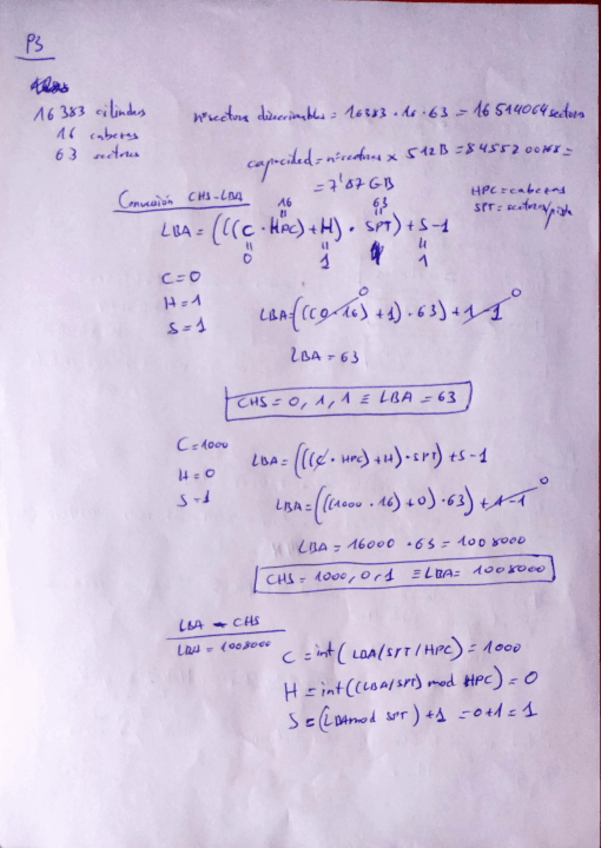 P3
16383 cilindros
16 cabezas
63 sectores
nº sectores direccionables = 16383 · 16 · 63 = 16514064 sectores
capacidad = nº sectores x 512B = 8455200768 =
= 7'87 GB
HPC = cabezas
SPT = sectores/pista
Conversión CHS-LBA
16 63
LBA = (((C · HPC) + H) · SPT) + S - 1
0 1 1
C = 0
H = 1
S = 1
LBA = (((0 · 16) + 1) · 63) + 1 - 1
0 0
LBA = 63
CHS = 0, 1, 1 ≡ LBA = 63
C = 1000
H = 0
S = 1
LBA = (((C · HPC) + H) · SPT) + S - 1
LBA = (((1000 · 16) + 0) · 63) + 1 - 1
0
LBA = 16000 · 63 = 1008000
CHS = 1000, 0, 1 ≡ LBA = 1008000
LBA - CHS
LBA = 1008000
C = int ( LBA / SPT / HPC ) = 1000
H = int ((LBA / SPT) mod HPC) = 0
S = (LBA mod SPT) + 1 = 0 + 1 = 1